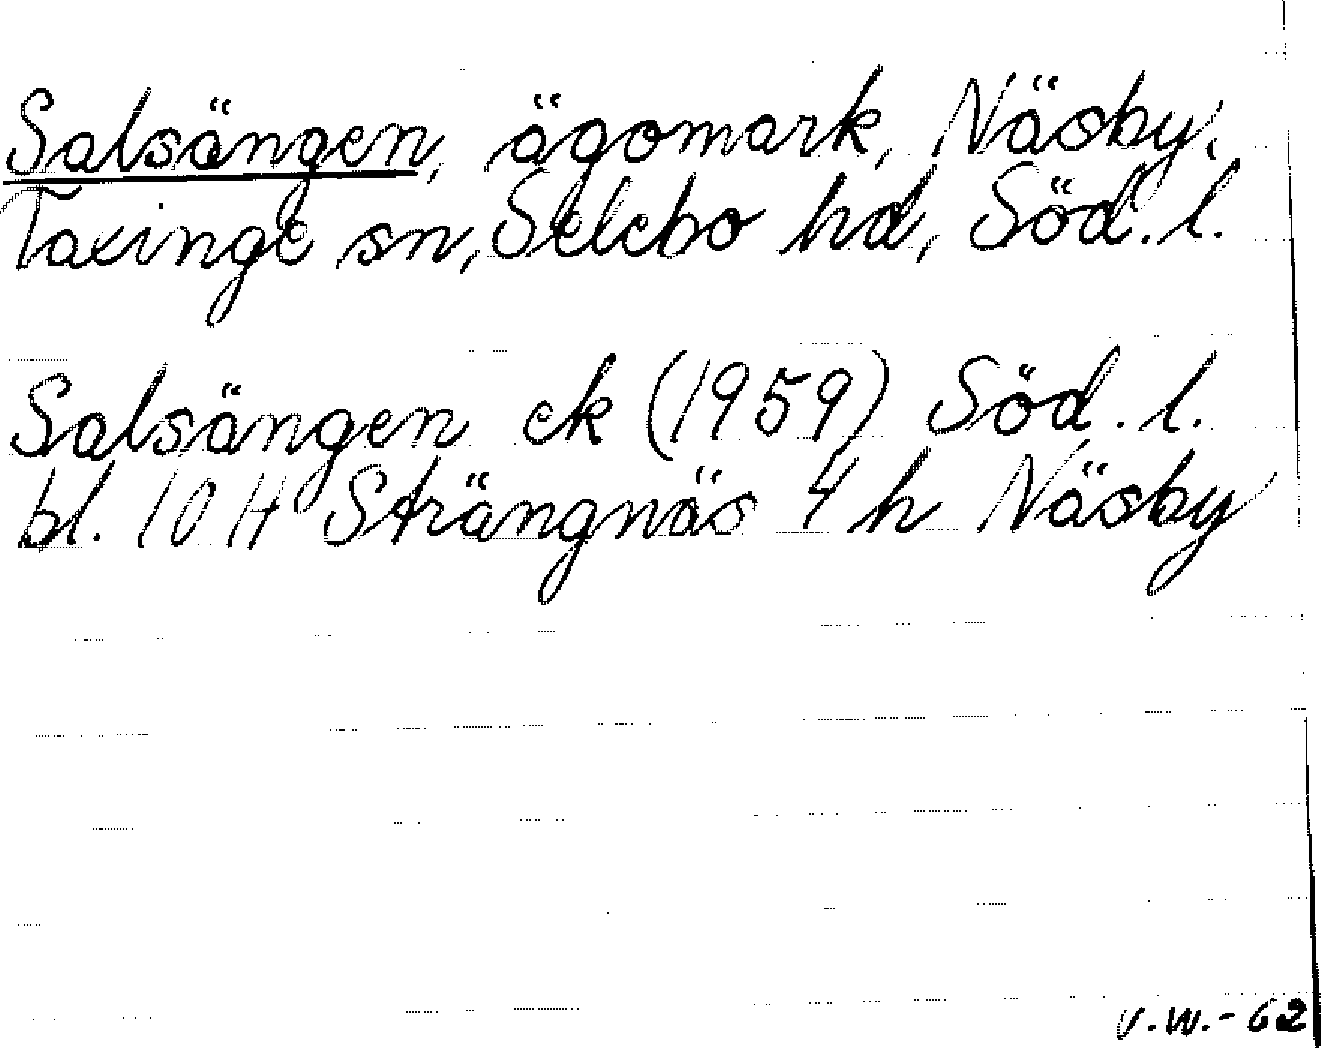 Salsängen, ägomark, Näsby,
Taxinge sn, Selebo hd, Söd. l.
Salsängen ek (1959) Söd. l.
bl. 10 H Strängnäs 4 h Näsby
v.w.-62